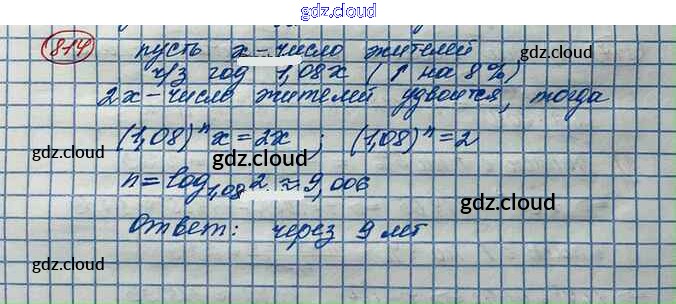 gdz.cloud
814 пусть x - число жителей
gdz.cloud
ч/з год 1,08x (↑ на 8%)
gdz.cloud
2x - число жителей удвоится, тогда
(1,08)ⁿx = 2x ; (1,08)ⁿ = 2
gdz.cloud
gdz.cloud
n = log₁,₀₈2 ≈ 9,006
gdz.cloud
Ответ: через 9 лет
gdz.cloud
gdz.cloud